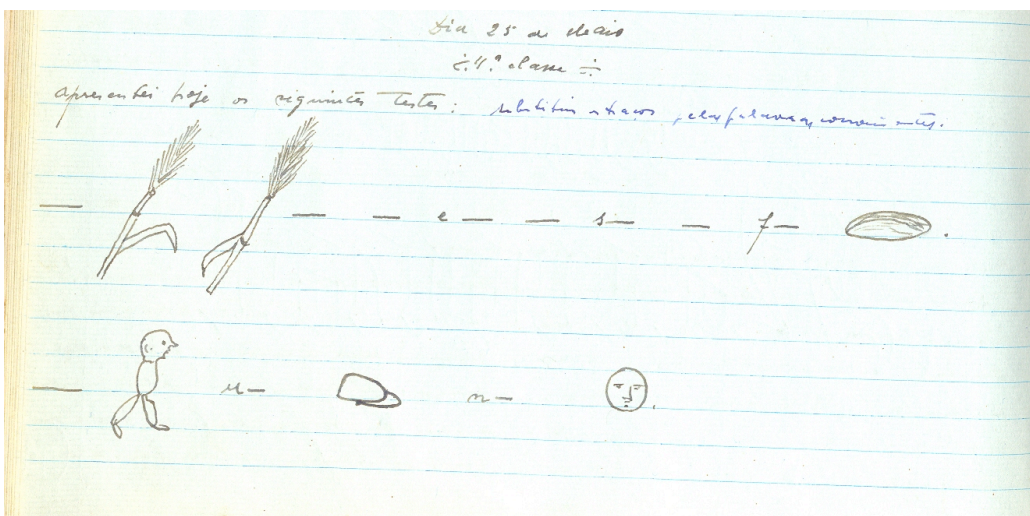 Dia 25 de Maio
÷ 4.ª classe ÷
Apresentei hoje os seguintes testes: substituir os traços pelas palavras convenientes.
— — — e — — s— — f— .
— u— n— .